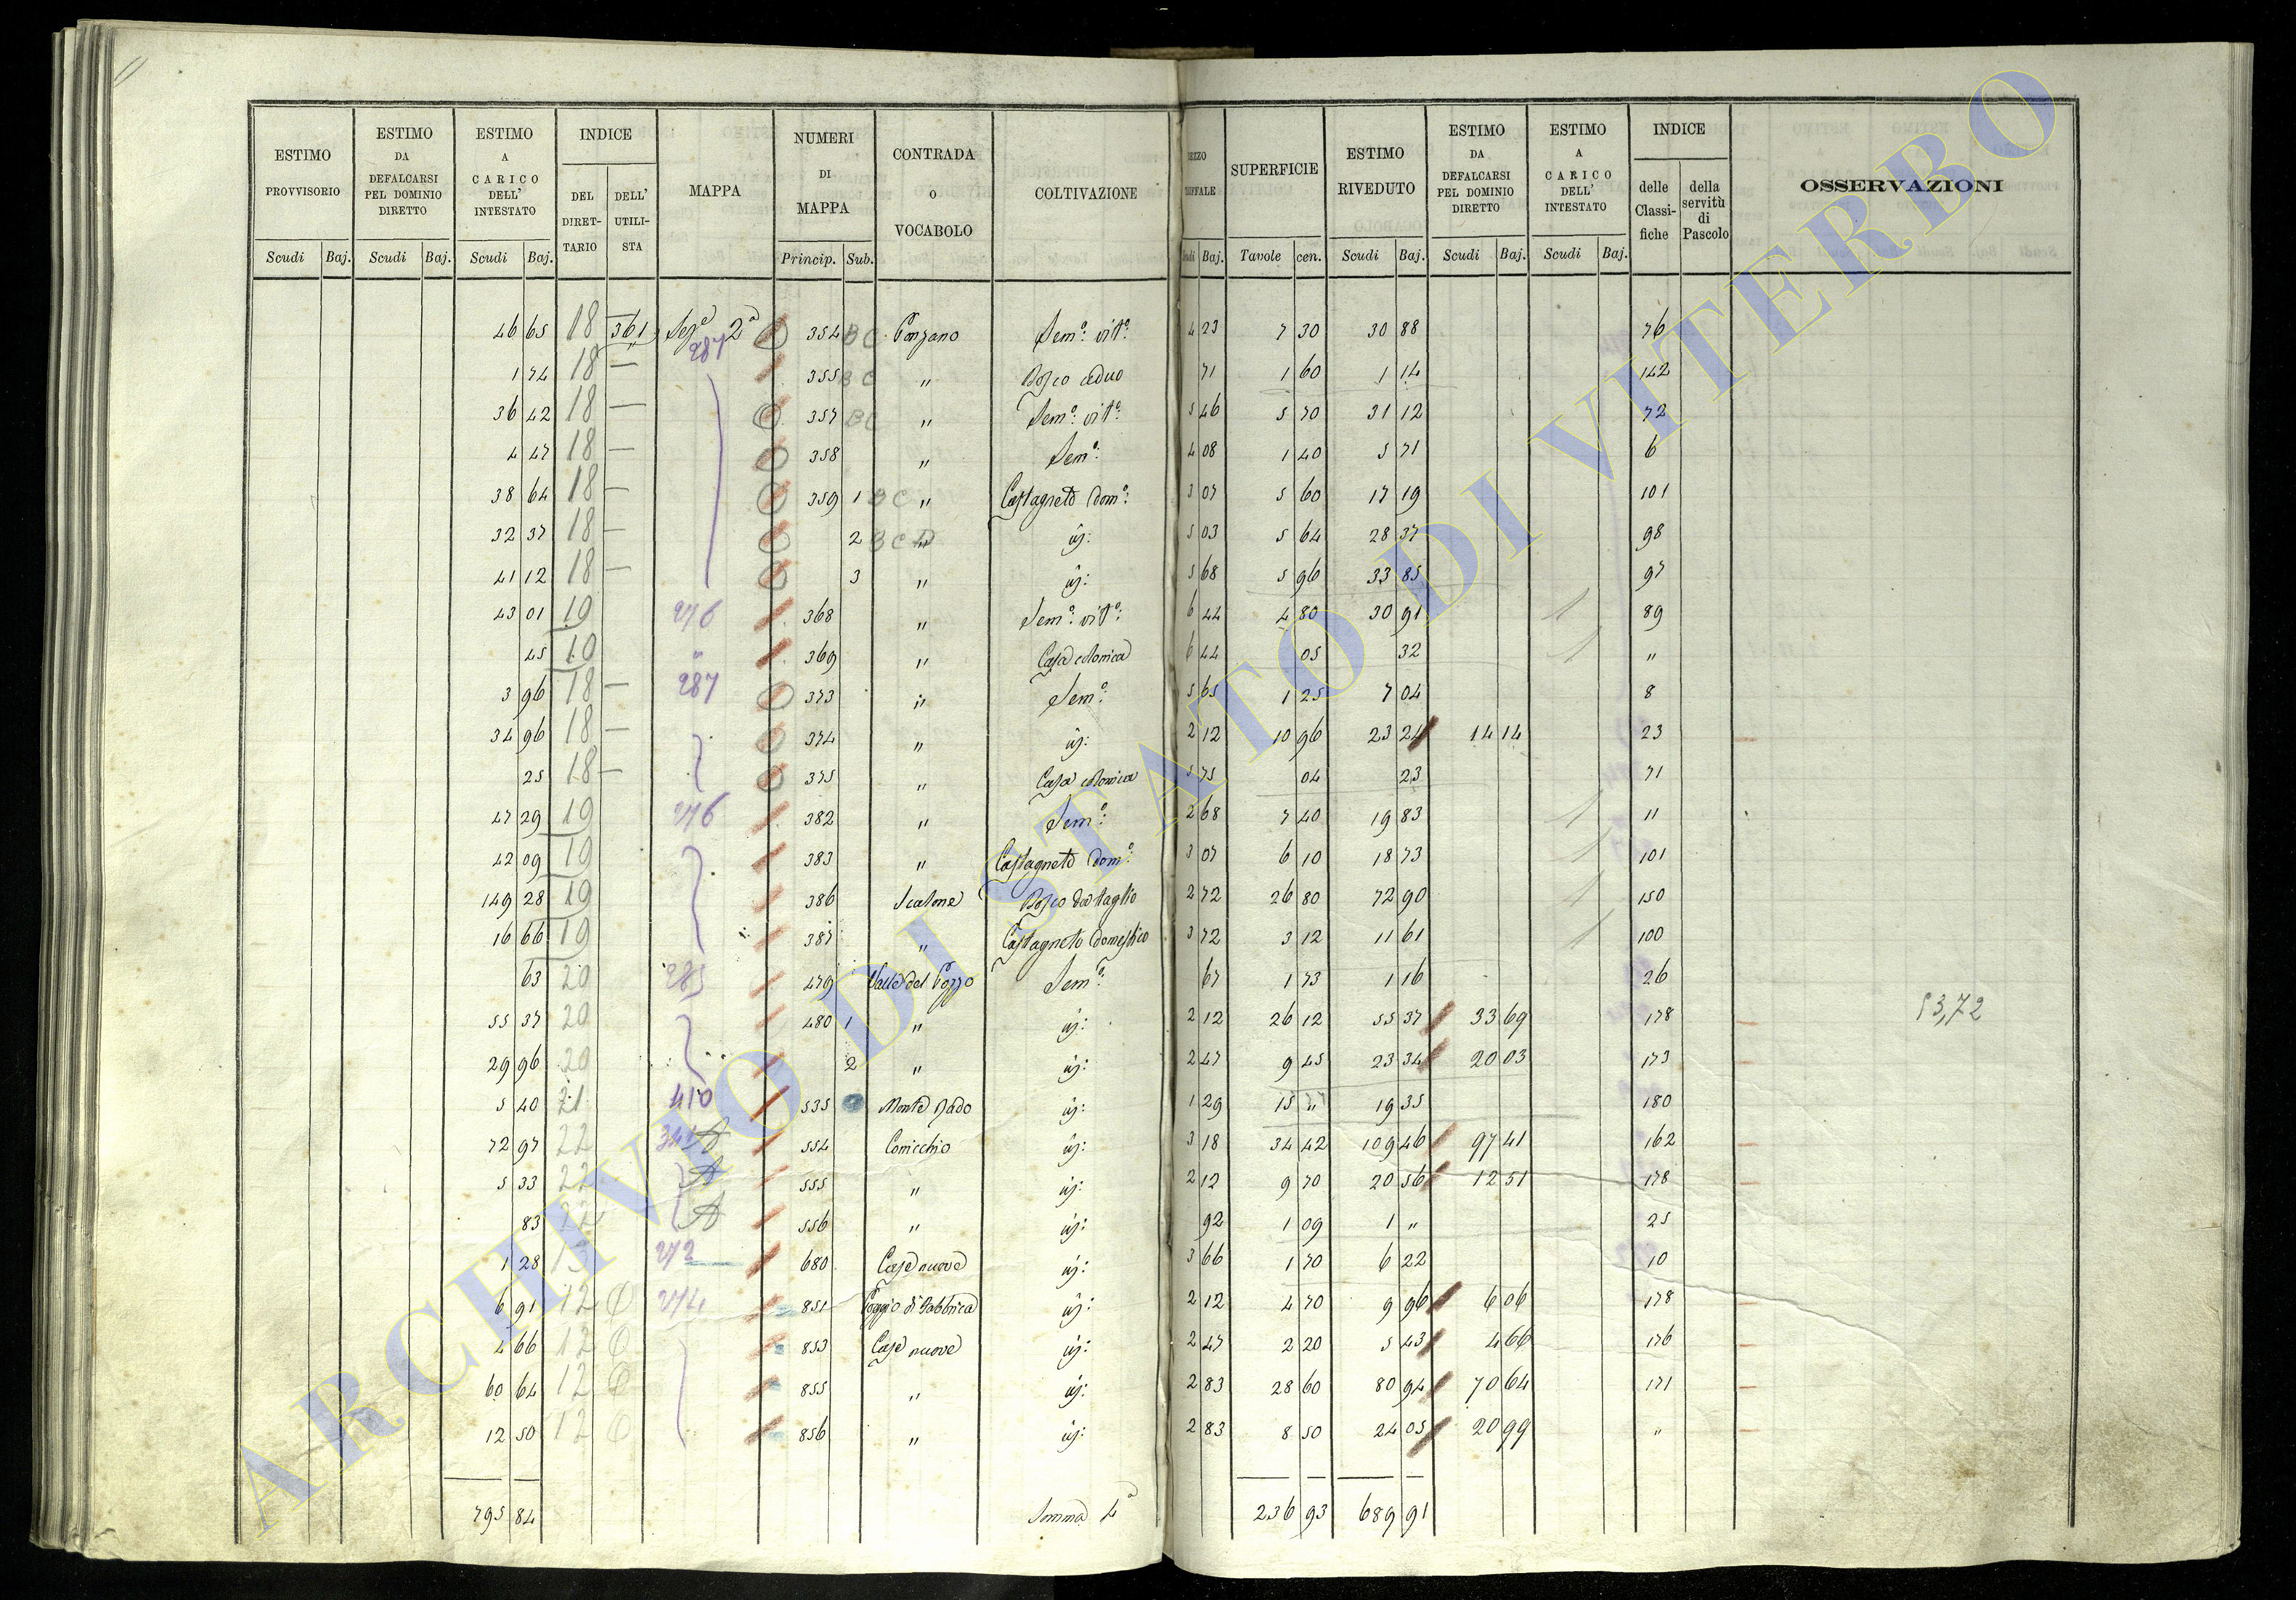 ESTIMO PROVVISORIO | ESTIMO DA DEFALCARSI PEL DOMINIO DIRETTO | ESTIMO A CARICO DELL' INTESTATO | INDICE | MAPPA | NUMERI DI MAPPA | CONTRADA o VOCABOLO | COLTIVAZIONE | SUPERFICIE | ESTIMO RIVEDUTO | ESTIMO DA DEFALCARSI PEL DOMINIO DIRETTO | ESTIMO A CARICO DELL' INTESTATO | INDICE | OSSERVAZIONI
DEL DIRETTARIO | DELL' UTILISTA | delle Classifiche | della servitù di Pascolo
Scudi | Baj. | Scudi | Baj. | Scudi | Baj. | Princip. | Sub. | Baj. | Tavole | cen. | Scudi | Baj. | Scudi | Baj. | Scudi | Baj.
46 65 18 361 Sez.e 2a 354 B C Ponzano Sem.o vit.o 4 23 7 30 30 88 76
287
1 74 18 — 355 B C " Bosco ceduo 71 1 60 1 14 142
36 42 18 — 357 B C " Sem.o vit.o 5 46 5 70 31 12 72
4 47 18 — 358 " Sem.o 4 08 1 40 5 71 6
38 64 18 — 359 1 B C " Castagneto dom.o 3 07 5 60 17 19 101
32 37 18 — 2 B C D " id: 5 03 5 64 28 37 98
41 12 18 — 3 " id: 5 68 5 96 33 85 97
43 01 19 276 368 " Sem.o vit.o 6 44 4 80 30 91 89
45 19 " 369 " Casa colonica 6 44 05 32 "
3 96 18 — 287 373 " Sem.o 5 65 1 25 7 04 8
34 96 18 — 374 " id: 2 12 10 96 23 24 14 14 23
25 18 — 375 " Casa colonica 5 75 04 23 71
47 29 19 276 382 " Sem.o 2 68 7 40 19 83 11
42 09 19 383 " Castagneto dom.o 3 07 6 10 18 73 101
149 28 19 386 Scalone Bosco da taglio 2 72 26 80 72 90 150
16 66 19 387 " Castagneto domestico 3 72 3 12 11 61 100
63 20 285 479 Valle del Pozzo Sem.o 67 1 73 1 16 26
55 37 20 480 1 " id: 2 12 26 12 55 37 33 69 178 53,72
29 96 20 2 " id: 2 47 9 45 23 34 20 03 173
5 40 21 410 535 Monte Jado id: 1 29 15 " 19 35 180
72 97 22 A 554 Comicchio id: 3 18 34 42 109 46 97 41 162
5 33 22 A 555 " id: 2 12 9 70 20 56 12 51 178
83 22 A 556 " id: 92 1 09 1 " 25
1 28 13 272 680 Case nuove id: 3 66 1 70 6 22 10
6 91 12 274 851 Poggio di Fabbrica id: 2 12 4 70 9 96 6 06 178
4 66 12 853 Case nuove id: 2 47 2 20 5 43 4 66 176
60 64 12 855 " id: 2 83 28 60 80 94 70 64 171
12 50 12 856 " id: 2 83 8 50 24 05 20 99 "
795 84 Somma 4a 236 93 689 91
ARCHIVIO DI STATO DI VITERBO